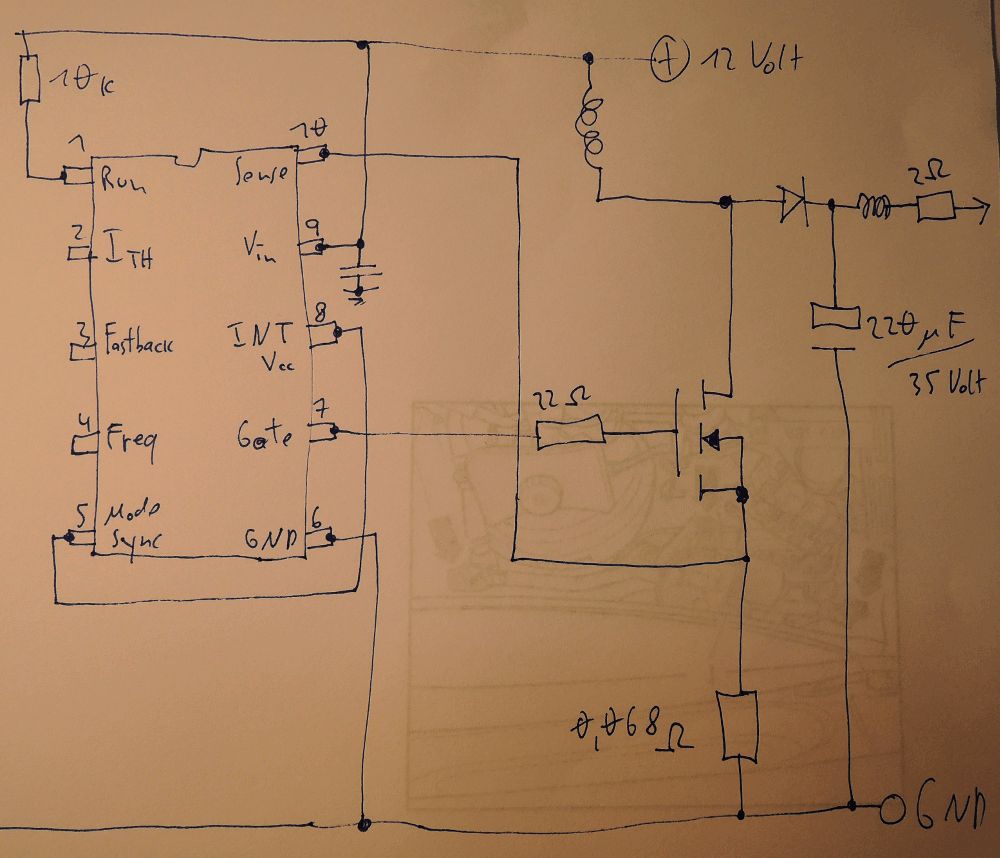 12 Volt
10k
1
Run
10
Sense
2Ω
2
ITH
9
Vin
3
Fastback
8
INT
Vcc
220µF
35 Volt
4
Freq
7
Gate
22Ω
5
Mode
Sync
6
GND
0,068Ω
GND